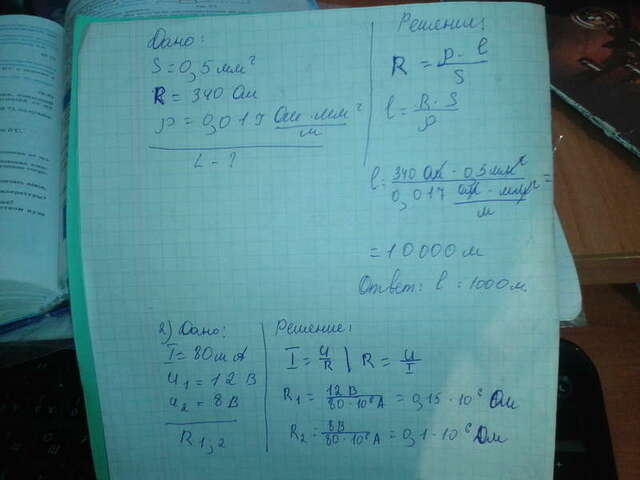 Дано:
S = 0,5 мм²
R = 340 Ом
ρ = 0,017 Ом · мм² / м
L - ?
Решение:
R = ρ · l / S
l = R · S / ρ
l = 340 Ом · 0,5 мм² / 0,017 Ом · мм² / м =
= 10000 м
Ответ: l = 1000 м.
2) Дано:
I = 80 м A
U₁ = 12 В
U₂ = 8 В
R₁,₂
Решение:
I = U / R | R = U / I
R₁ = 12 В / 80 · 10⁶ А = 0,15 · 10⁶ Ом
R₂ = 8 В / 80 · 10⁶ А = 0,1 · 10⁶ Ом